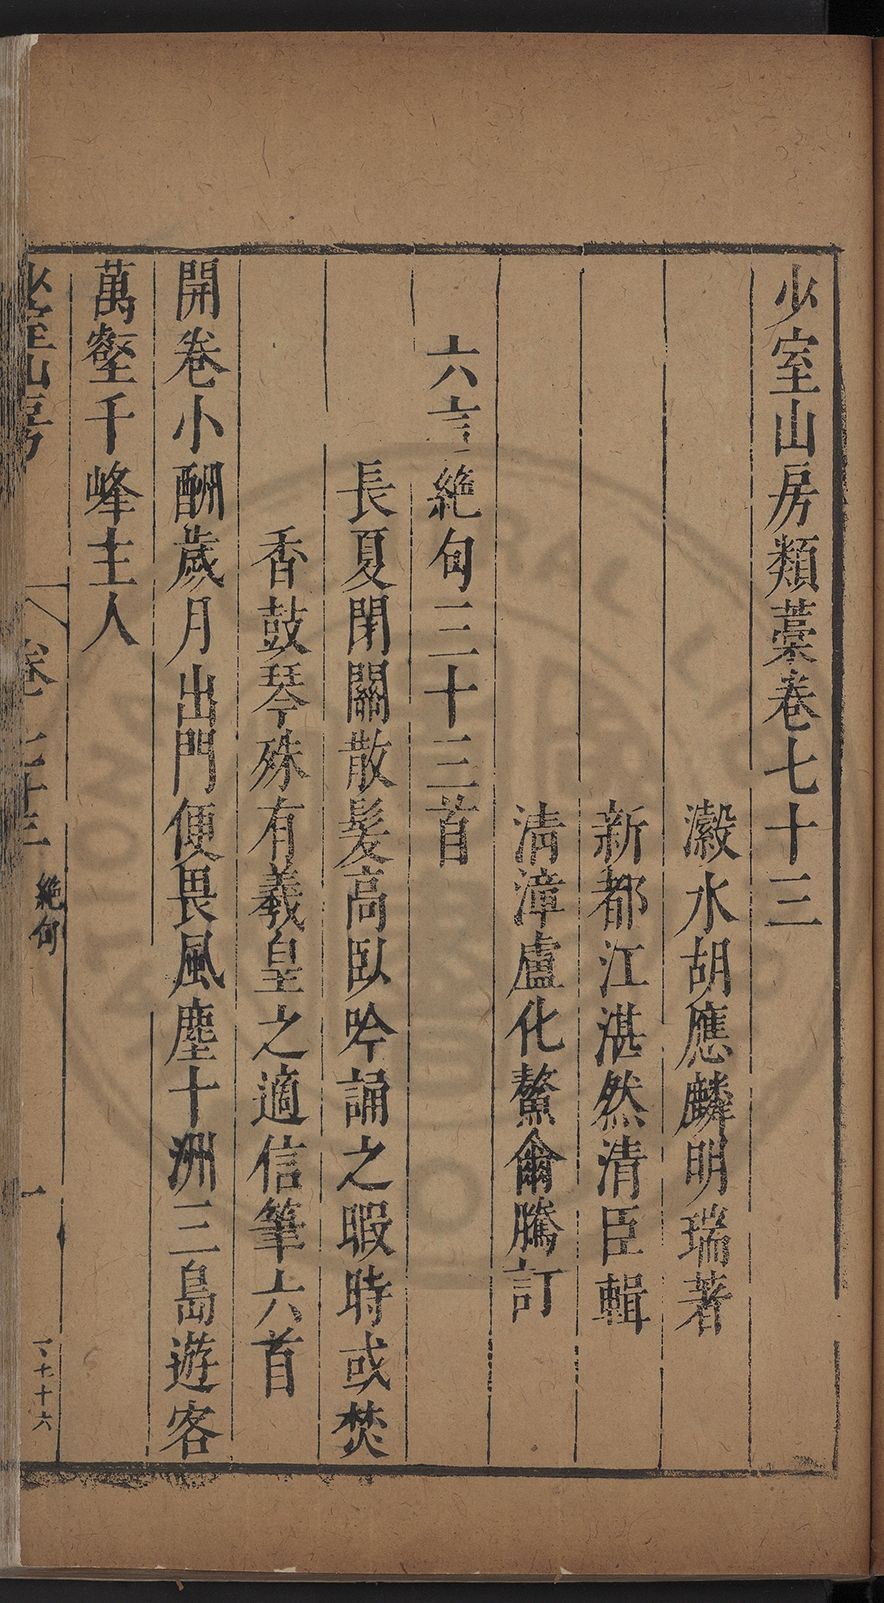 少室山房類藁卷七十三
瀫水胡應麟明瑞著
新都江湛然清臣輯
清漳盧化鰲爾騰訂
六言絶句三十三首
長夏閉關散髮高臥吟誦之暇時或焚
香鼓琴殊有羲皇之適信筆六首
開卷小酬歲月出門便畏風塵十洲三島遊客
萬壑千峰主人
少室山房
卷七十三
絶句
一